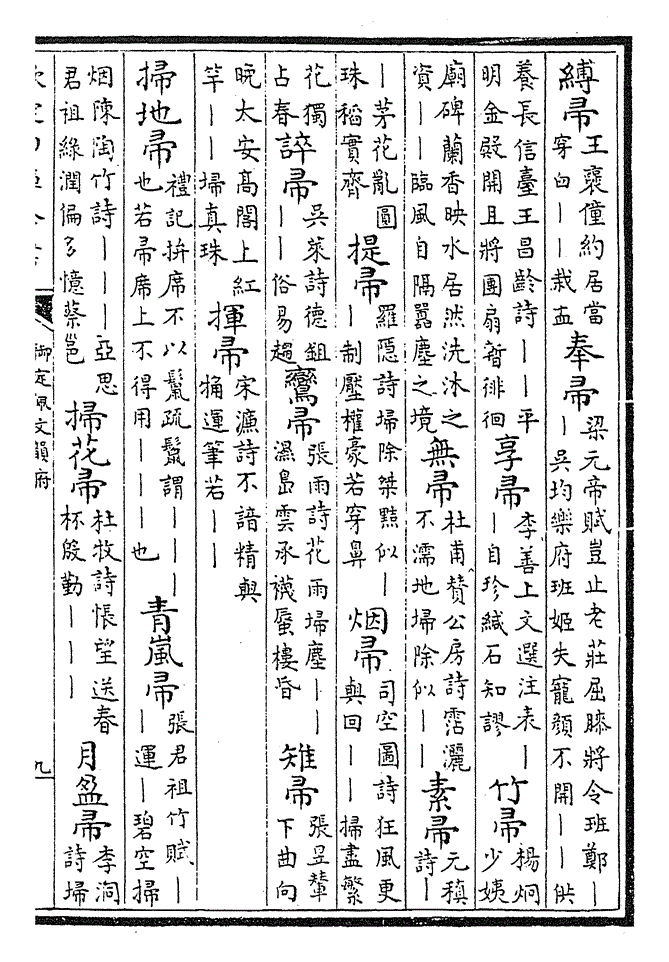 縛帚王襃僮約居當穿臼｜｜裁盂奉帚梁元帝賦豈止老莊屈膝將令班鄭｜｜吳均樂府班姬失寵顏不開｜｜供
養長信臺王昌齡詩｜｜平明金殿開且將團扇暫徘徊享帚李善上文選注表｜｜自珍緘石知謬竹帚楊炯少姨
廟碑蘭香映水居然洗沐之資｜｜臨風自隔囂塵之境無帚杜甫贊公房詩霑灑不濡地掃除似｜｜素帚元稹詩｜
｜茅花亂圓珠稻實齊提帚羅隱詩掃除桀黠似｜｜制壓權豪若穿鼻烟帚司空圖詩狂風更與回｜｜掃盡繁
花獨占春誶帚吳萊詩德鉏｜｜俗易趨鸞帚張雨詩花雨掃塵｜｜濕島雲承襪蜃樓昏雉帚張昱輦下曲向
晚大安高閣上紅竿｜｜掃真珠揮帚宋濂詩不諳精與觕運筆若｜｜
掃地帚禮記拚席不以鬣疏鬣謂｜｜｜也若帚席上不得用｜｜｜也青嵐帚張君祖竹賦｜｜運｜碧空掃
烟陳陶竹詩｜｜｜亞思君祖綠潤偏多憶蔡邕掃花帚杜牧詩悵望送春杯殷勤｜｜｜月盈帚李洞詩掃
御定佩文韻府
九